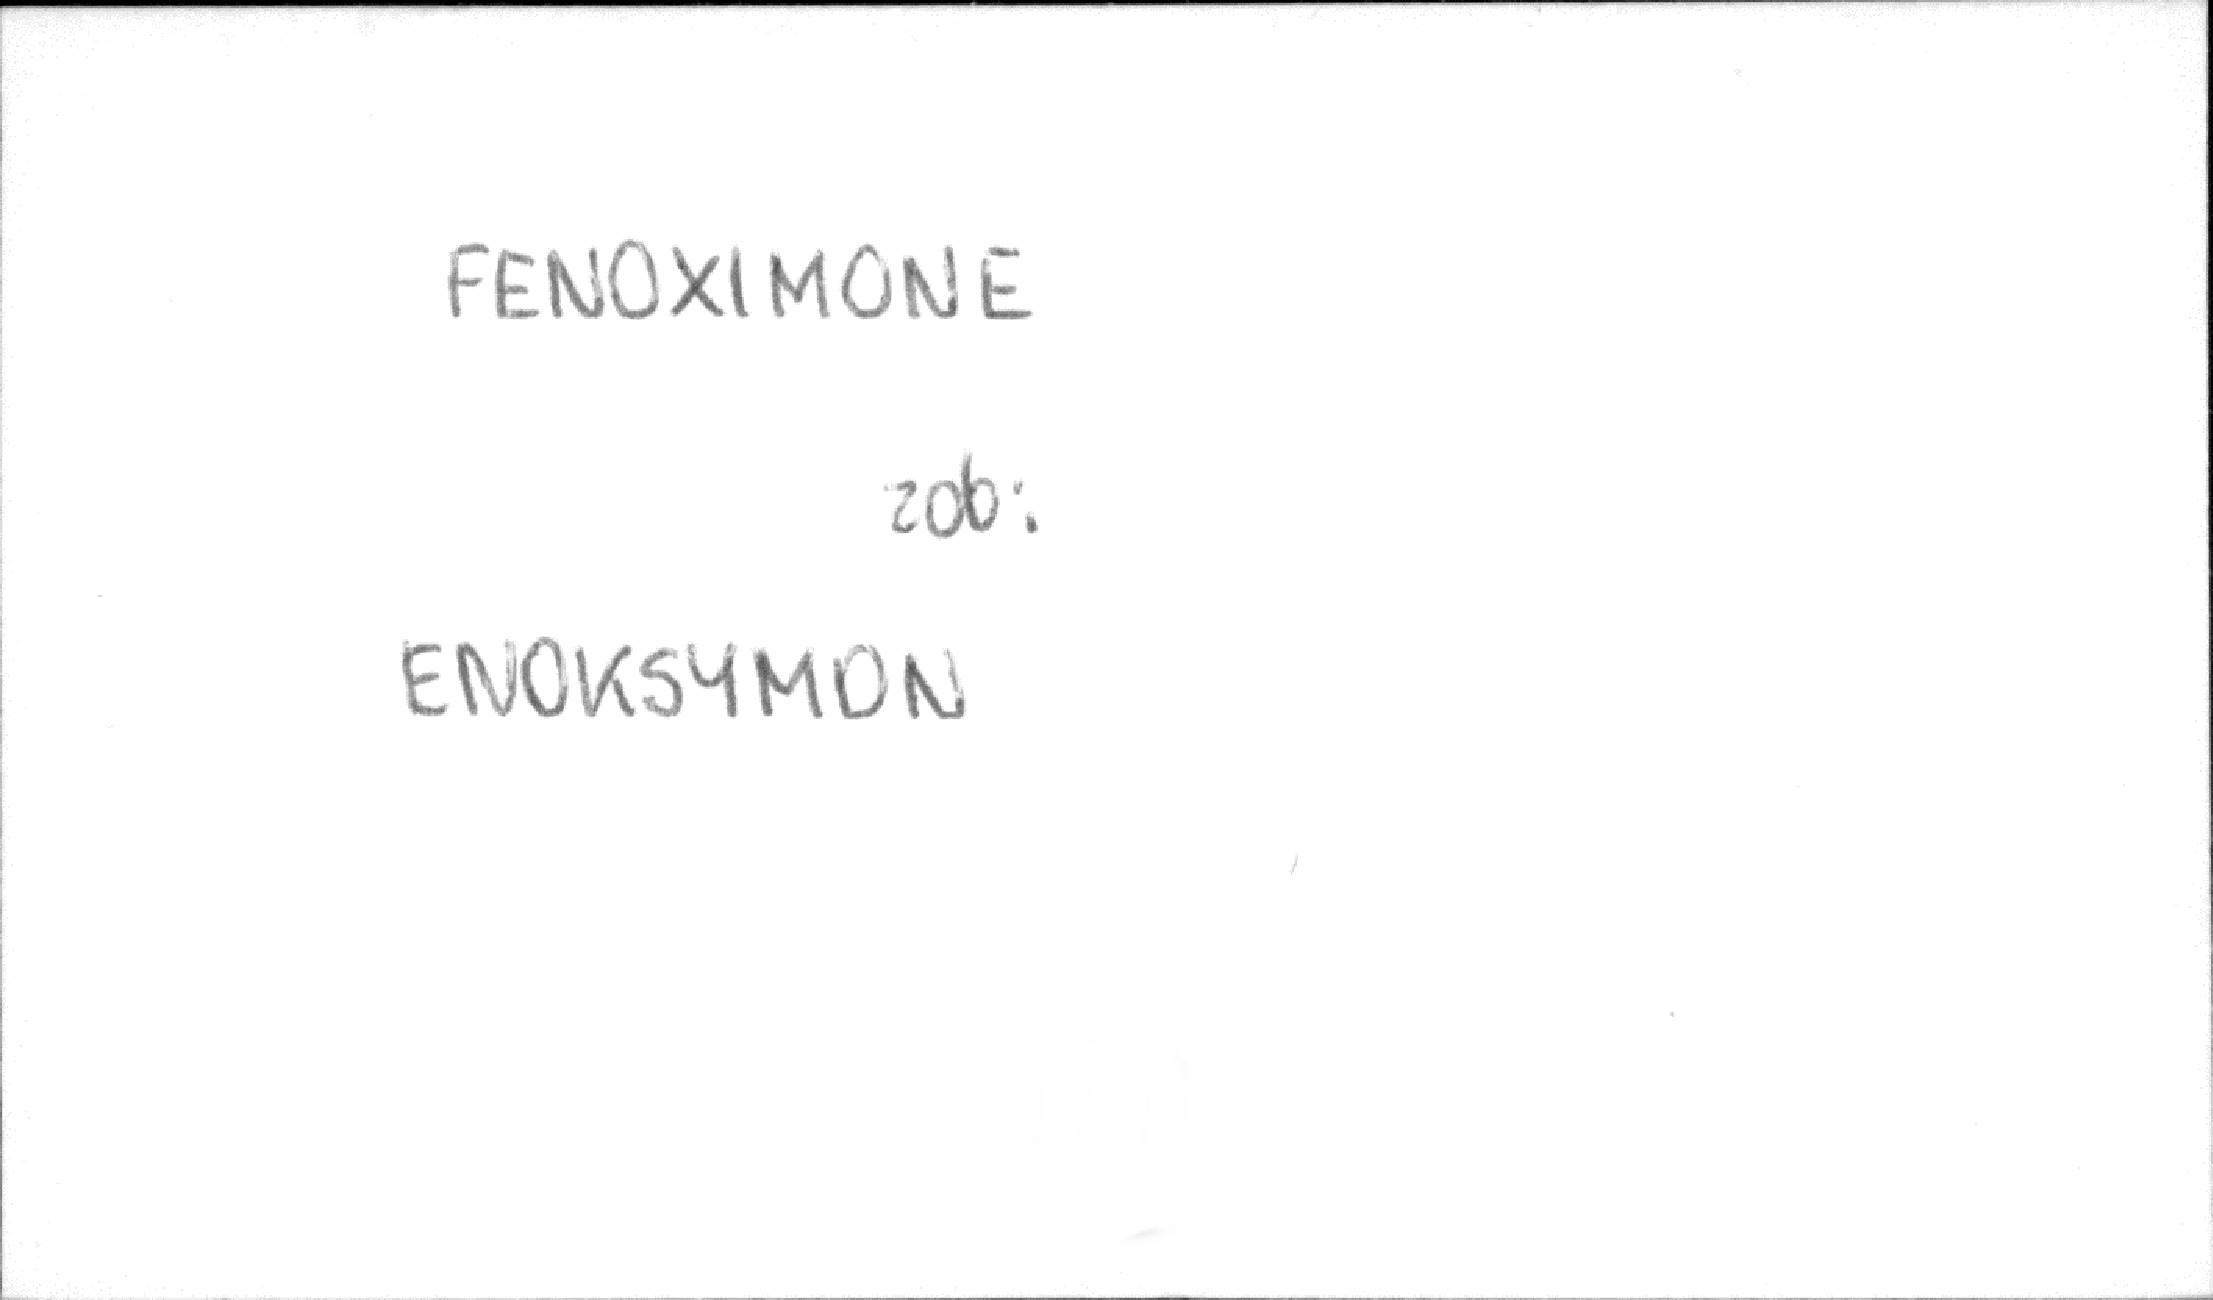 FENOXIMONE
zob:
ENOKSYMON